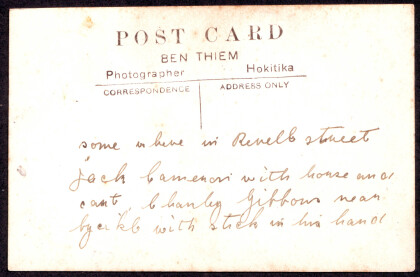 POST CARD
BEN THIEM
Photographer Hokitika
CORRESPONDENCE ADDRESS ONLY
some where in Revell street
Jack Cameron with horse and
cart, Charley Gibbons near
with stick in his hand